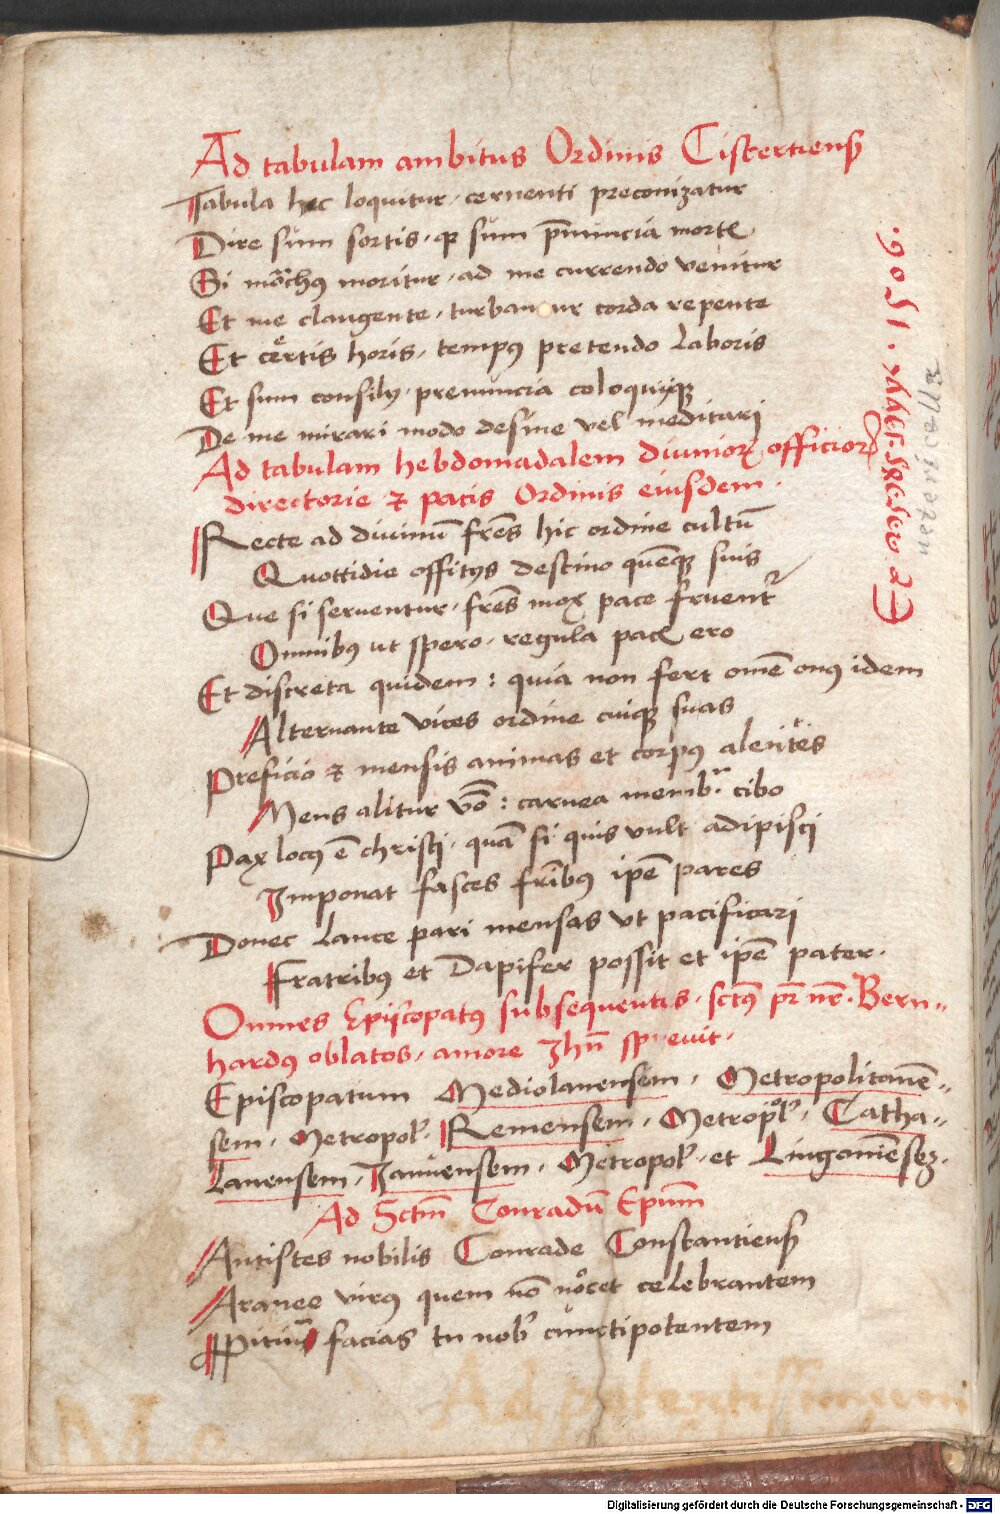 Ad tabulam ambitus Ordinis Cistertiensꝭ
Tabula hec loquitur, cernenti preconizatur
Dire sum sortis, qꝫ sum p̄nuncia mortꝭ
Si mo͞achꝰ moritur, ad me currendo venitur
Et me clangente, turbantur corda repente
Et certis horis, tempꝰ pretendo laboris
Et sum consilij, prenuncia coloquijqꝫ
De me mirari modo desine vel meditari
Ad tabulam hebdomadalem diuinoꝝ officioꝝ
directorie ⁊ pacis Ordinis eiusdem.
Recte ad diuinū fr̄es hic ordine cultū
Quottidie offitijs destino quēqꝫ suis
Que si seruentur, fr̄es mox pace fruent᷑
Omnibꝰ ut spero, regula pacꝭ ero
Et discreta quidem: quia non fert om̄e onꝰ idem
Alternante vices ordine cuiqꝫ suas
Preficio ⁊ mensis animas et corpꝰ alentes
Mens alitur v̄o: carnea memb.ᵃ cibo
Pax locꝰ ē christi, quā si quis vult adipisci
Imponat fasces fr̄ibꝰ ip̄e pares
Donec lance pari mensas ut pacificari
Fratribꝰ et Dapifer possit et ip̄e pater.
Omnes Episcopatꝰ subsequentes, sctꝰ pr̄ nr̄. Bern⸗
hardꝰ oblatos, amore Jhū spreuit.
Episcopatum Mediolanensem, Metropolitanē⸗
sem, Metropol̓. Remensem, Metropol̓, Catha⸗
lanensem, Januensem, Metropol̓. et Lingoniēseꝫ.
Ad Sctm̄ Conradū Epūm
Antistes nobilis Conrade Constantiensꝭ
Aranee virꝰ quem nō nocet celebrantem
facias tu nob̓ cunctipotentem
.1506.
Ad potentissimum
Digitalisierung gefördert durch die Deutsche Forschungsgemeinschaft - DFG